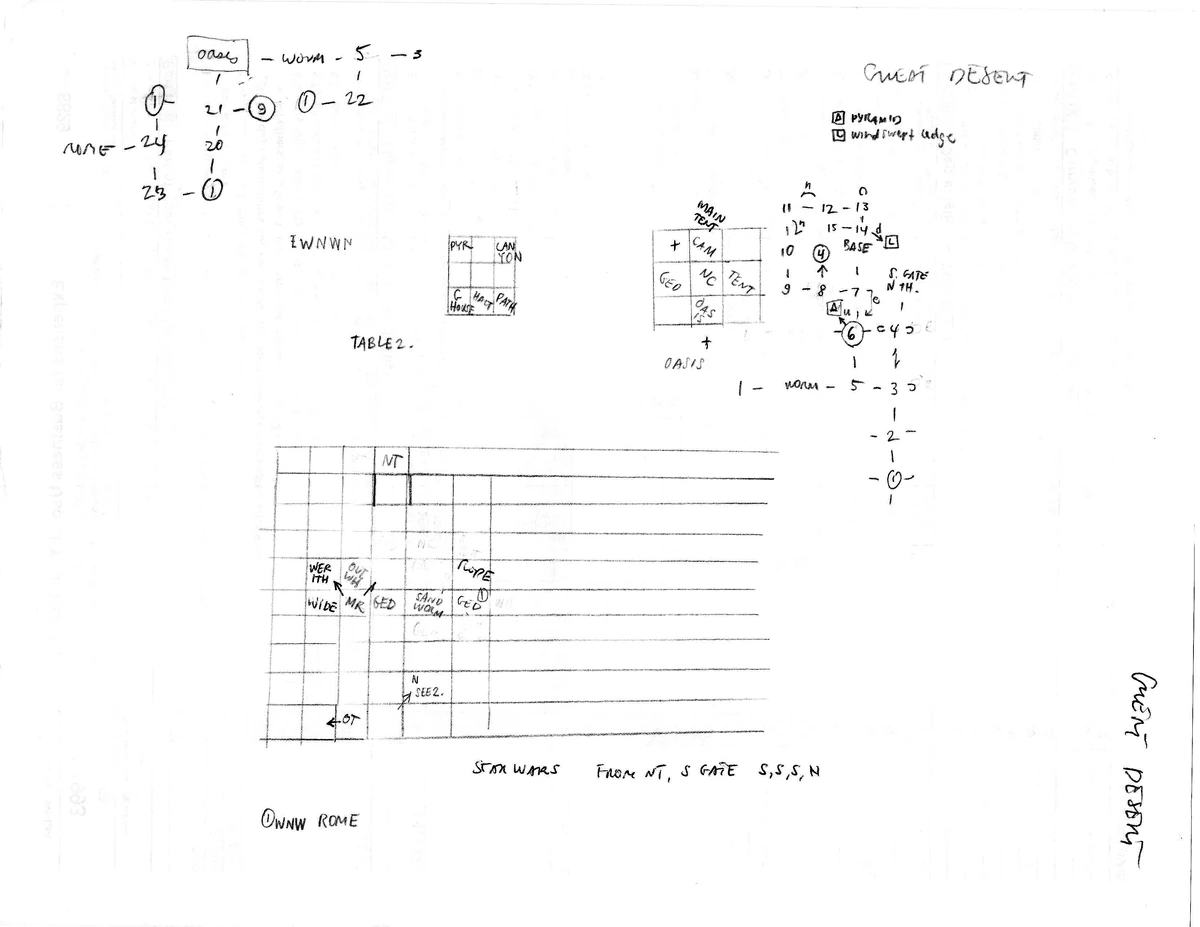 oasis - WORM - 5 - 3
① - 21 - ⑨ ① - 22
ROME - 24 20
23 - ①
GREAT DESERT
A PYRAMID
L windswept ledge
EWNWN
PYR CAN YON
G HOUSE HALT PATH
TABLE 2.
MAIN TENT
+ CAM
GED NC TENT
OAS IS
+
OASIS
n n
11 - 12 - 13
12 n 15 - 14 d L
10 ④ BASE
S. GATE
9 - 8 - 7 N TH.
e
A u
- ⑥ - 4
1 - WORM - 5 - 3
- 2 -
- ① -
NT
WER ITH OUT WH ROPE
WIDE MR GED SAND WORM GED ①
N SEE 2.
← OT
STAR WARS FROM NT, S GATE S,S,S,N
① WNW ROME
GREAT DESERT